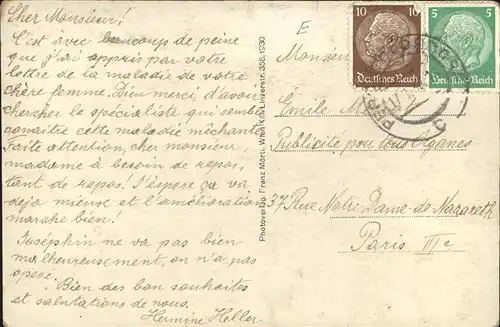 Cher Monsieur!
C'est avec beaucoup de peine
que j'ai appris par votre
lettre de la maladie de votre
chère femme. Dieu merci, d'avoir
chercher le spécialiste qui semble
connaitre cette maladie méchante.
Faite attention, cher monsieur,
madame à besoin de repos,
tant de repos! J'éspère ça va
deja mieuse et l'amélioration
marche bien!
Joséphin ne va pas bien
malheureusement, on n'a pas
operé.
Bien des bon souhaites
et salutations de nous.
Hermine Holler
Photoverlag Franz Mörtl, Wien XIV, Linzerstr. 338, 1930
E
10 10
Deutsches Reich
5 5
Deutsches Reich
Monsieur
Émile
Publicité pour tous Organes
37 Rue Notre Dame-de Nazareth
Paris IIIe